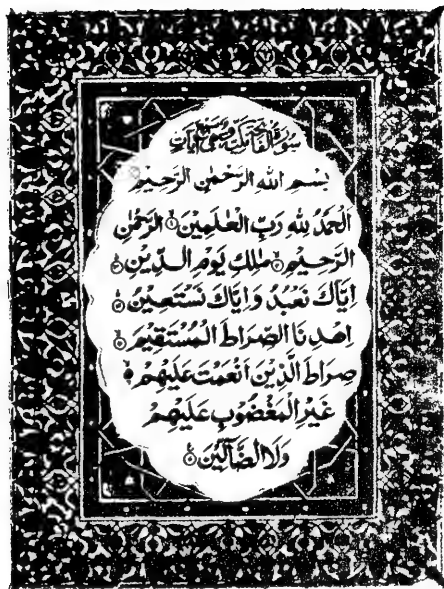 سورة الفاتحة مكية وهي سبع آيات
بِسْمِ اللهِ الرَّحْمٰنِ الرَّحِيْمِ
اَلْحَمْدُ لِلّٰهِ رَبِّ الْعٰلَمِيْنَ ۝ الرَّحْمٰنِ
الرَّحِيْمِ ۝ مٰلِكِ يَوْمِ الدِّيْنِ ۝
اِيَّاكَ نَعْبُدُ وَاِيَّاكَ نَسْتَعِيْنُ ۝
اِهْدِنَا الصِّرَاطَ الْمُسْتَقِيْمَ ۝
صِرَاطَ الَّذِيْنَ اَنْعَمْتَ عَلَيْهِمْ ۝
غَيْرِ الْمَغْضُوْبِ عَلَيْهِمْ
وَلَا الضَّآلِّيْنَ ۝